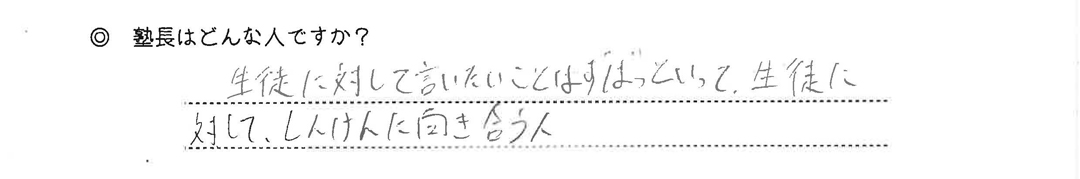 ◎ 塾長はどんな人ですか?
生徒に対して言いたいことはずばっといって、生徒に
対して、しんけんに向き合う人